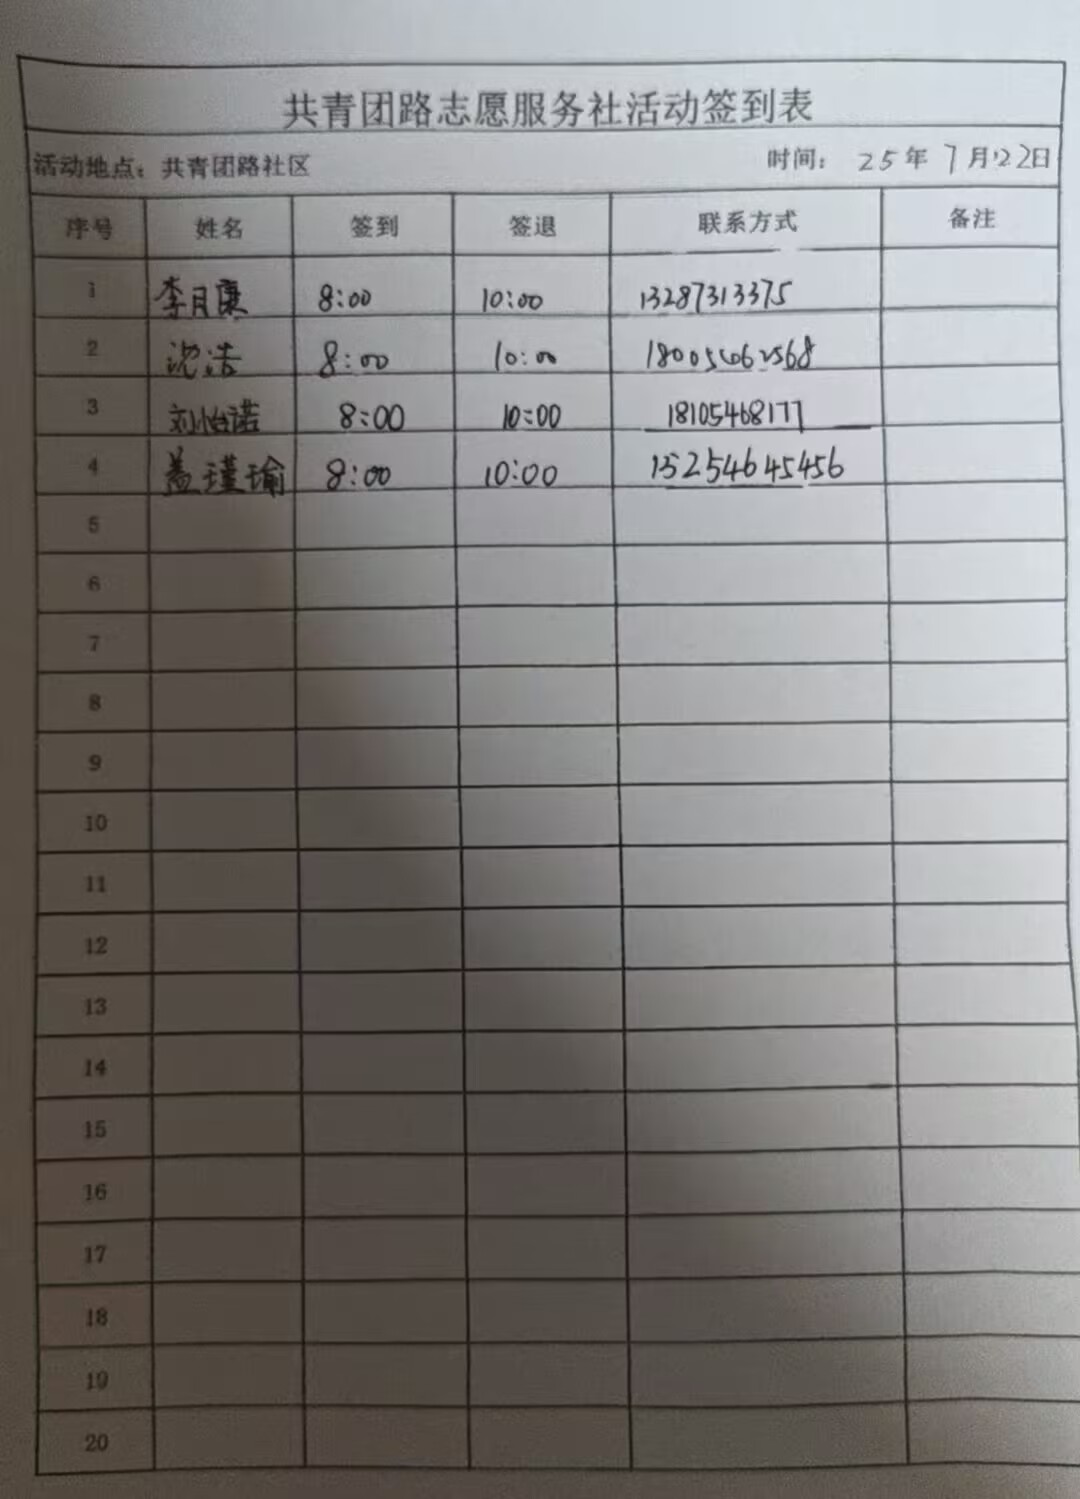 共青团路志愿服务社活动签到表
活动地点：共青团路社区 时间： 25年7月22日
序号 姓名 签到 签退 联系方式 备注
1 李月康 8:00 10:00 13287313375
2 沈浩 8:00 10:00 18005462568
3 刘怡诺 8:00 10:00 18105468177
4 盖瑾瑜 8:00 10:00 15254645456
5
6
7
8
9
10
11
12
13
14
15
16
17
18
19
20